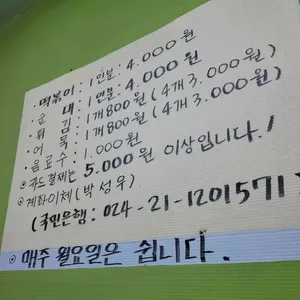 · 떡볶이 : 1인분 : 4.000원
· 순대 : 1인분 : 4.000원
· 튀김 : 1개 800원 (4개 3.000원)
· 어묵 : 1개 800원 (4개 3.000원)
· 음료수 : 1.000원
⊙ 카드결제는 5.000원 이상입니다!
⊙ 계좌이체 (박성우)
(국민은행 : 024-21-1201571
⊙ 매주 월요일은 쉽니다.